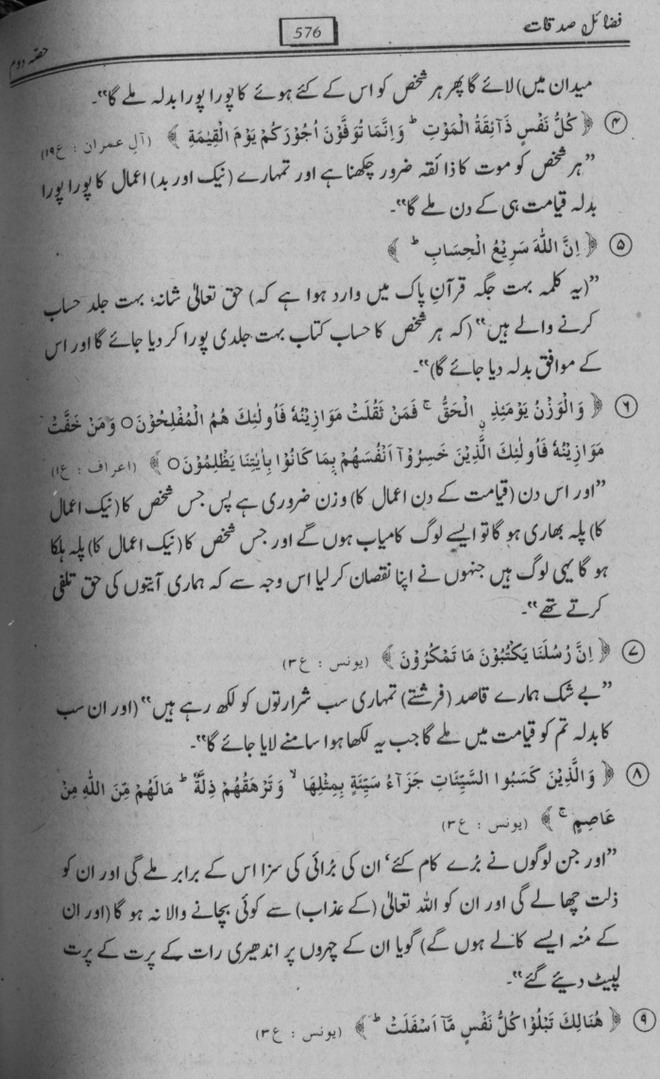 فضائل صدقات
576
حصہ دوم
میدان میں) لائے گا پھر ہر شخص کو اس کے کئے ہوئے کا پورا پورا بدلہ ملے گا“۔
④ ﴿ كُلُّ نَفْسٍ ذَآئِقَةُ الْمَوْتِ ؕ وَاِنَّمَا تُوَفَّوْنَ اُجُوْرَكُمْ يَوْمَ الْقِيٰمَةِ ﴾ (آل عمران : ع۱۹)
”ہر شخص کو موت کا ذائقہ ضرور چکھنا ہے اور تمہارے (نیک اور بد) اعمال کا پورا پورا
بدلہ قیامت ہی کے دن ملے گا“۔
⑤ ﴿ اِنَّ اللّٰهَ سَرِيْعُ الْحِسَابِ ؕ ﴾
”(یہ کلمہ بہت جگہ قرآن پاک میں وارد ہوا ہے کہ) حق تعالیٰ شانہٗ، بہت جلد حساب
کرنے والے ہیں“ (کہ ہر شخص کا حساب کتاب بہت جلدی پورا کر دیا جائے گا اور اس
کے موافق بدلہ دیا جائے گا)“۔
⑥ ﴿ وَالْوَزْنُ يَوْمَئِذِ ۨ الْحَقُّ ۚ فَمَنْ ثَقُلَتْ مَوَازِيْنُهٗ فَاُولٰٓئِكَ هُمُ الْمُفْلِحُوْنَ ○ وَمَنْ خَفَّتْ
مَوَازِيْنُهٗ فَاُولٰٓئِكَ الَّذِيْنَ خَسِرُوْٓا اَنْفُسَهُمْ بِمَا كَانُوْا بِاٰيٰتِنَا يَظْلِمُوْنَ ○ ﴾ (اعراف : ع۱)
”اور اس دن (قیامت کے دن اعمال کا) وزن ضروری ہے پس جس شخص کا (نیک اعمال
کا) پلہ بھاری ہو گا تو ایسے لوگ کامیاب ہوں گے اور جس شخص کا (نیک اعمال کا) پلہ ہلکا
ہو گا یہی لوگ ہیں جنہوں نے اپنا نقصان کر لیا اس وجہ سے کہ ہماری آیتوں کی حق تلفی
کرتے تھے“۔
⑦ ﴿ اِنَّ رُسُلَنَا يَكْتُبُوْنَ مَا تَمْكُرُوْنَ ﴾ (یونس : ع۳)
”بے شک ہمارے قاصد (فرشتے) تمہاری سب شرارتوں کو لکھ رہے ہیں“ (اور ان سب
کا بدلہ تم کو قیامت میں ملے گا جب یہ لکھا ہوا سامنے لایا جائے گا“۔
⑧ ﴿ وَالَّذِيْنَ كَسَبُوا السَّيِّئَاتِ جَزَآءُ سَيِّئَةٍ بِمِثْلِهَا ۙ وَتَرْهَقُهُمْ ذِلَّةٌ ؕ مَالَهُمْ مِّنَ اللّٰهِ مِنْ
عَاصِمٍ ۚ ﴾ (یونس : ع۳)
”اور جن لوگوں نے بُرے کام کئے‘ ان کی بُرائی کی سزا اس کے برابر ملے گی اور ان کو
ذلت چھا لے گی اور ان کو اللہ تعالیٰ (کے عذاب) سے کوئی بچانے والا نہ ہو گا (اور ان
کے مُنہ ایسے کالے ہوں گے) گویا ان کے چہروں پر اندھیری رات کے پرت کے پرت
لپیٹ دیئے گئے“۔
⑨ ﴿ هُنَالِكَ تَبْلُوْا كُلُّ نَفْسٍ مَّآ اَسْفَلَتْ ؕ ﴾ (یونس : ع۳)